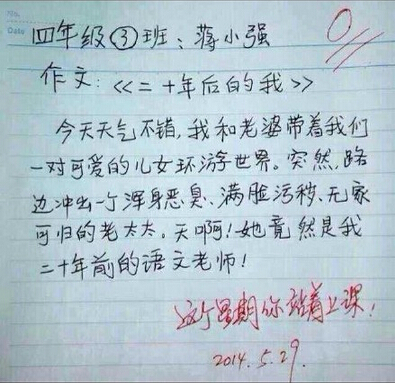 四年级③班：蒋小强
0
作文：《二十年后的我》
今天天气不错,我和老婆带着我们
一对可爱的儿女环游世界。突然,路
边冲出一个浑身恶臭、满脸污秽、无家
可归的老太太。天啊!她竟然是我
二十年前的语文老师!
这个星期你站着上课!
2014.5.29.